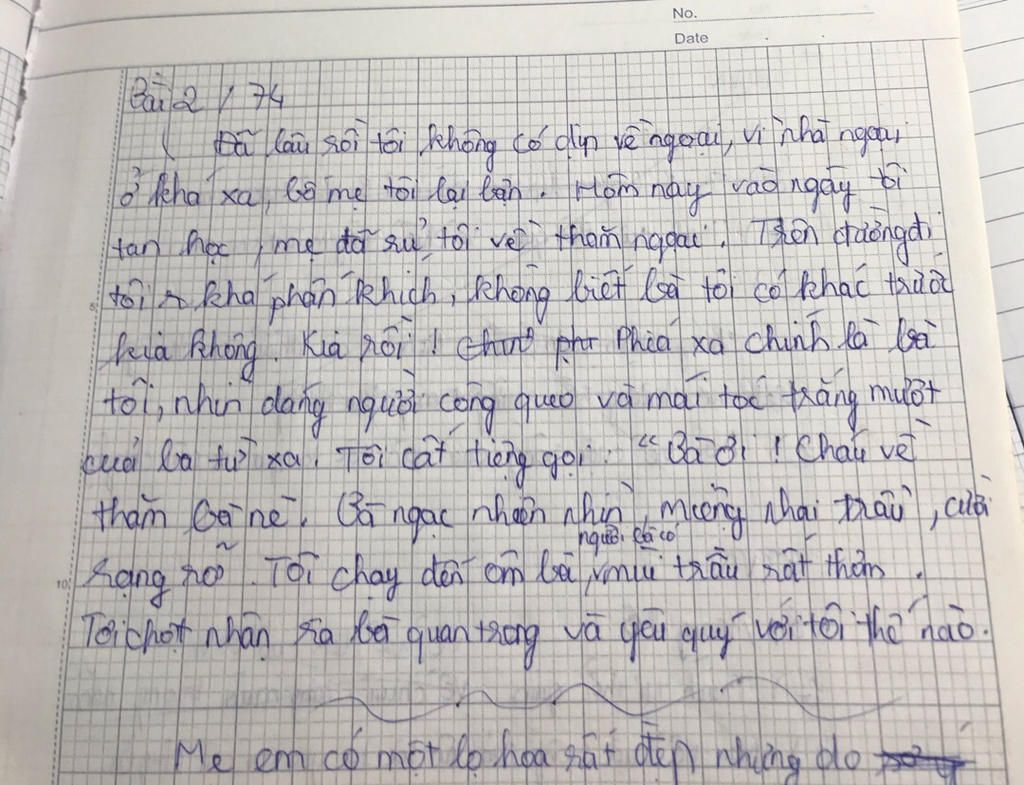 No.
Date
Bài 2 / 74
Đã lâu rồi tôi không có dịp về ngoại, vì nhà ngoại
ở khá xa, bố mẹ tôi lại bận. Hôm nay vào ngày tôi
tan học, mẹ đã rủ tôi về thăm ngoại. Trên đường đi
tôi khá phấn khích, không biết bà tôi có khác trước
kia không. Kia rồi! Phía xa chính là bà
tôi, nhìn dáng người còng queo và mái tóc trắng mướt
của bà từ xa. Tôi cất tiếng gọi: "Bà ơi! Cháu về
thăm bà nè. Bà ngạc nhiên nhìn, miệng nhai trầu, cười
người bà có
rạng rỡ. Tôi chạy đến ôm bà, mùi trầu rất thơm.
Tôi chợt nhận ra bà quan trọng và yêu quý với tôi thế nào.
10
Mẹ em có một lọ hoa rất đẹp nhưng do